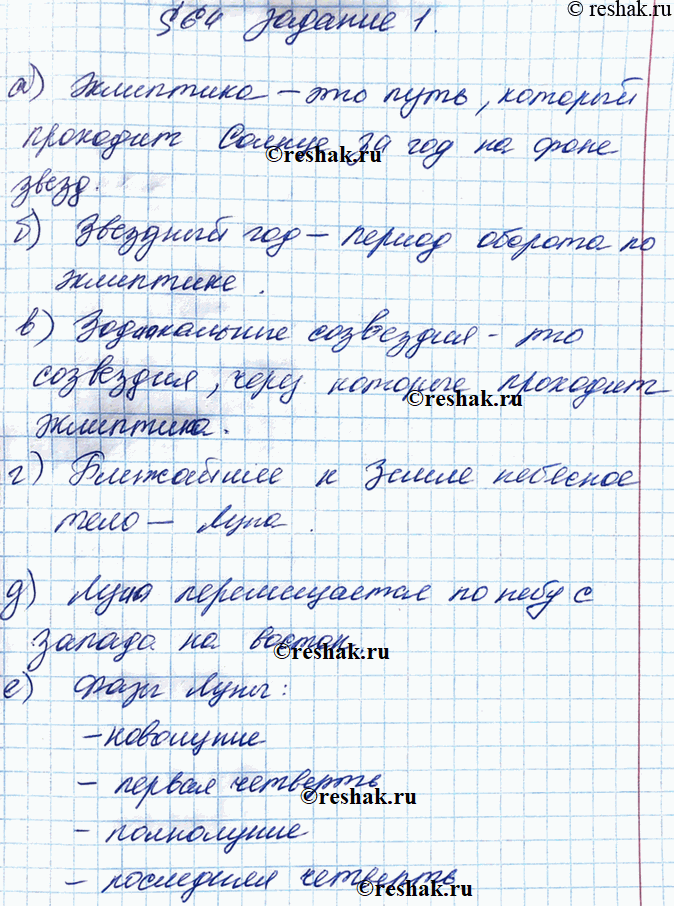 © reshak.ru
§64 Задание 1.
а) Эклиптика – это путь, который
проходит Солнце за год на фоне
© reshak.ru
звезд.
б) Звездный год – период оборота по
эклиптике.
в) Зодиакальные созвездия - это
созвездия, через которые проходит
© reshak.ru
эклиптика.
г) Ближайшее к Земле небесное
тело – Луна.
д) Луна перемещается по небу с
запада на восток.
© reshak.ru
е) Фазы Луны:
– новолуние
– первая четверть
© reshak.ru
– полнолуние
– последняя четверть
© reshak.ru